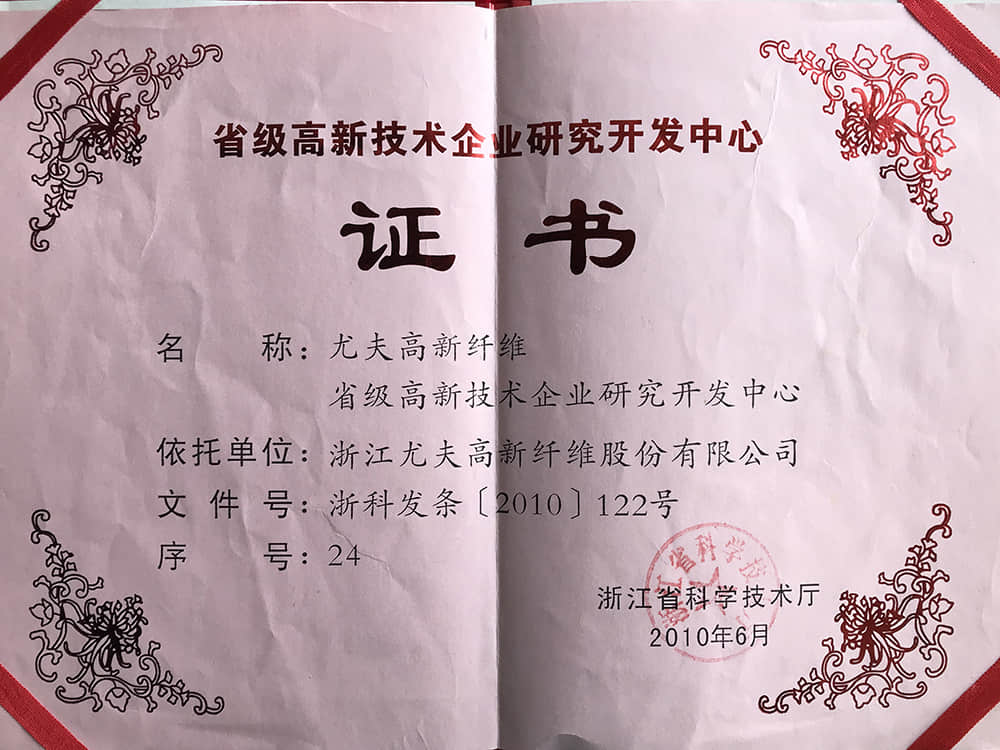 省级高新技术企业研究开发中心
证书
名称：尤夫高新纤维
省级高新技术企业研究开发中心
依托单位：浙江尤夫高新纤维股份有限公司
文件号：浙科发条〔2010〕122号
序号：24
浙江省科学技术厅
2010年6月
浙江省科学技